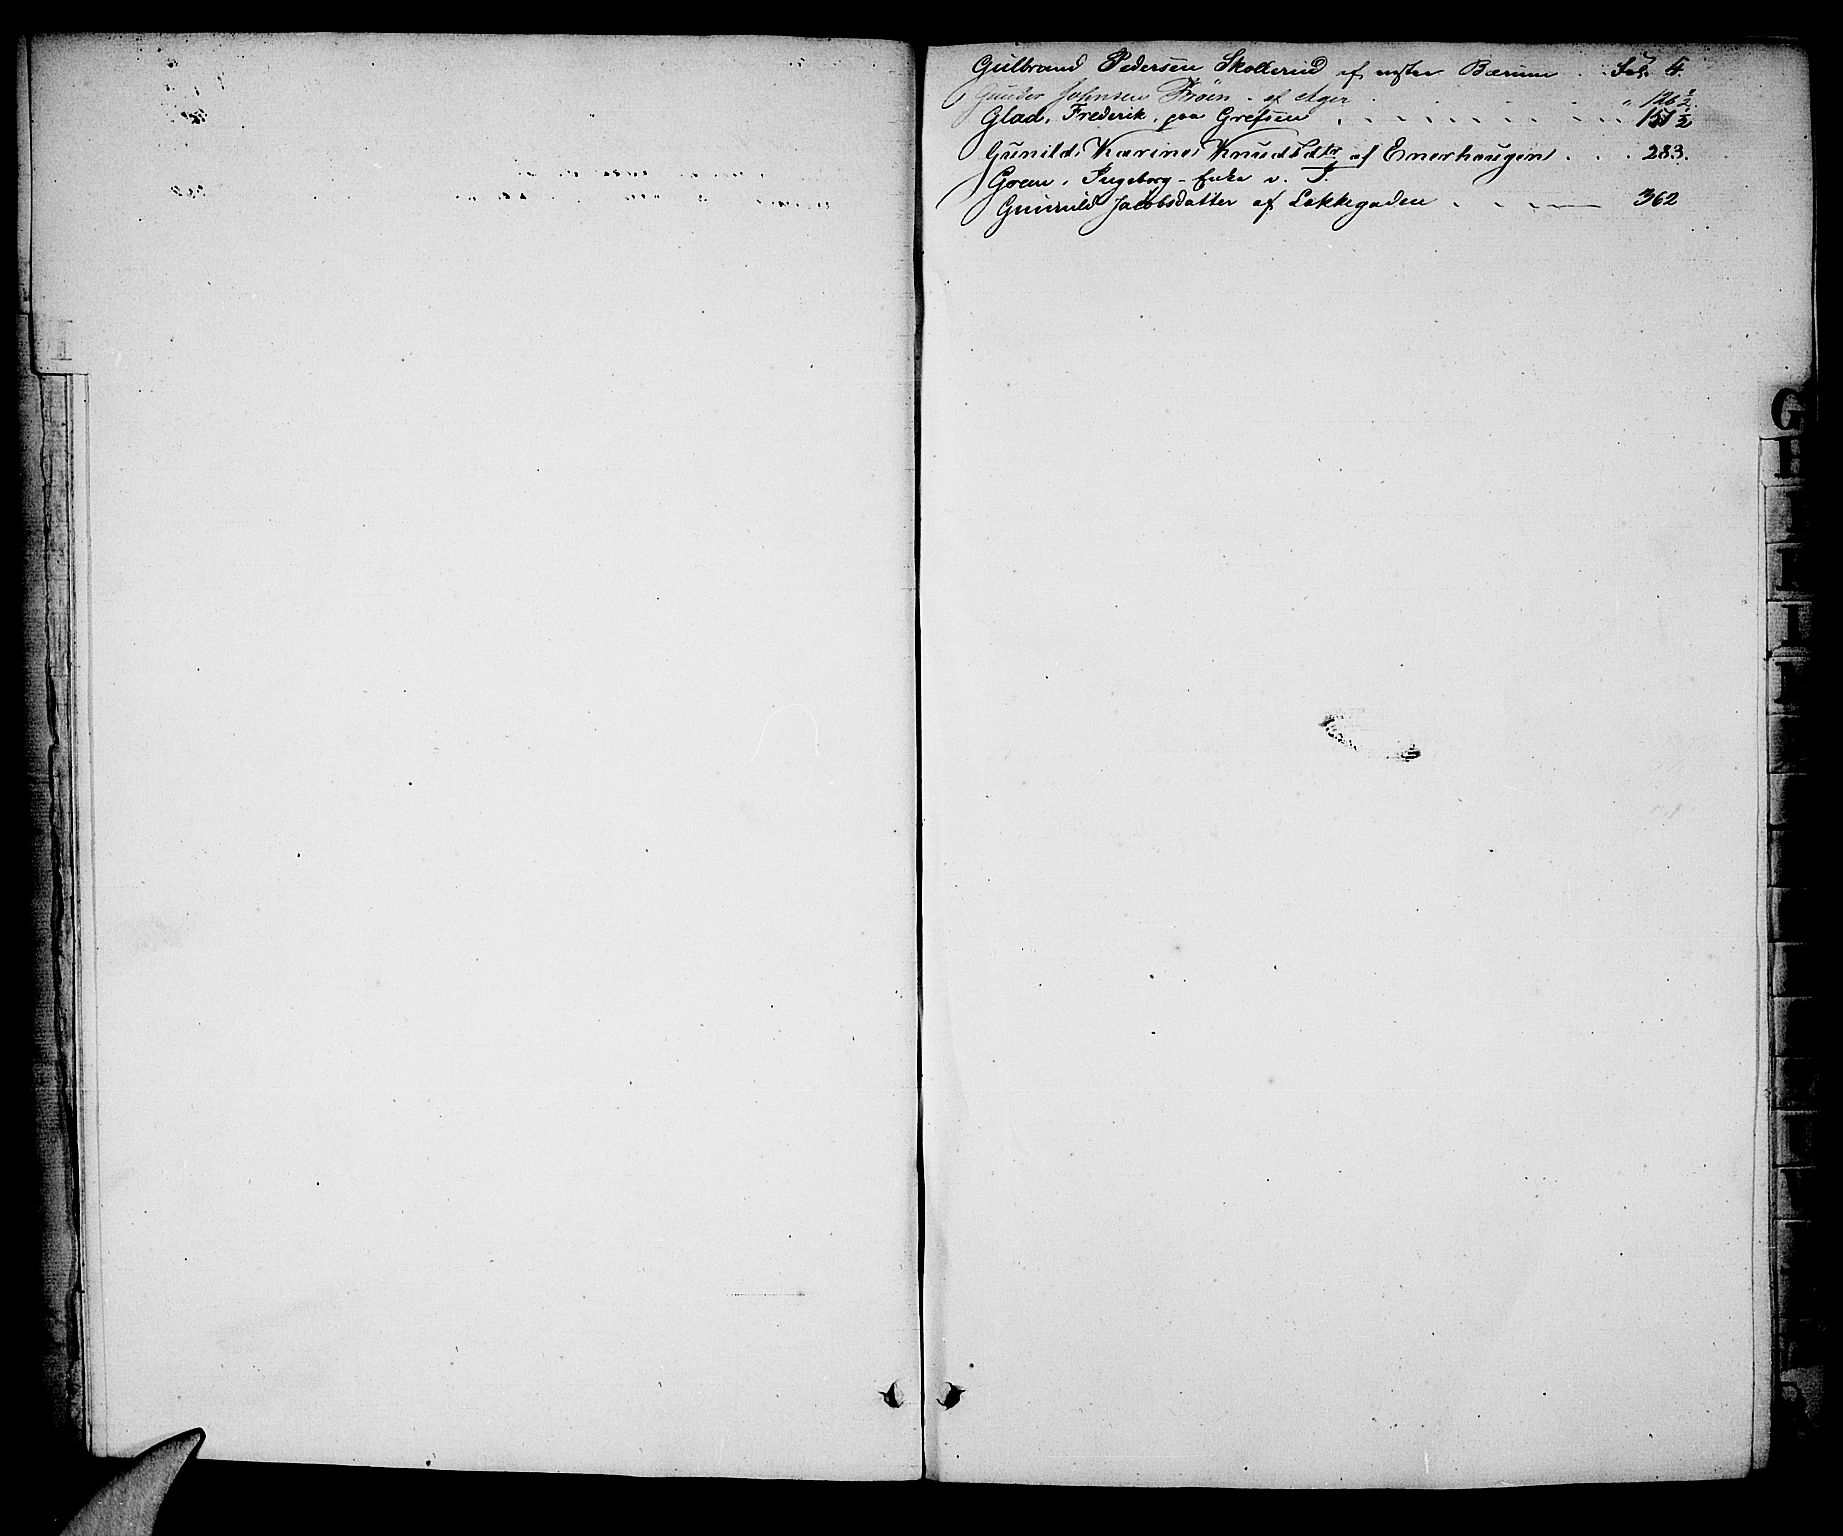 Gulbrand Pedersen Skollerud af vestre Bærum . . Fol. 4.
Gunder Johnsen Broen - af Ager . . . . . . " 126 ½.
Glad, Frederik, paa Grefsen . . . . . . . . 151 ½
Gunild Karine Knudsdtr af Enerhaugen . . . 283.
Groen, Ingeborg - Enke v. I.
Gunnild Jacobsdatter af Lakkegaden . . . . 362
G
H
I